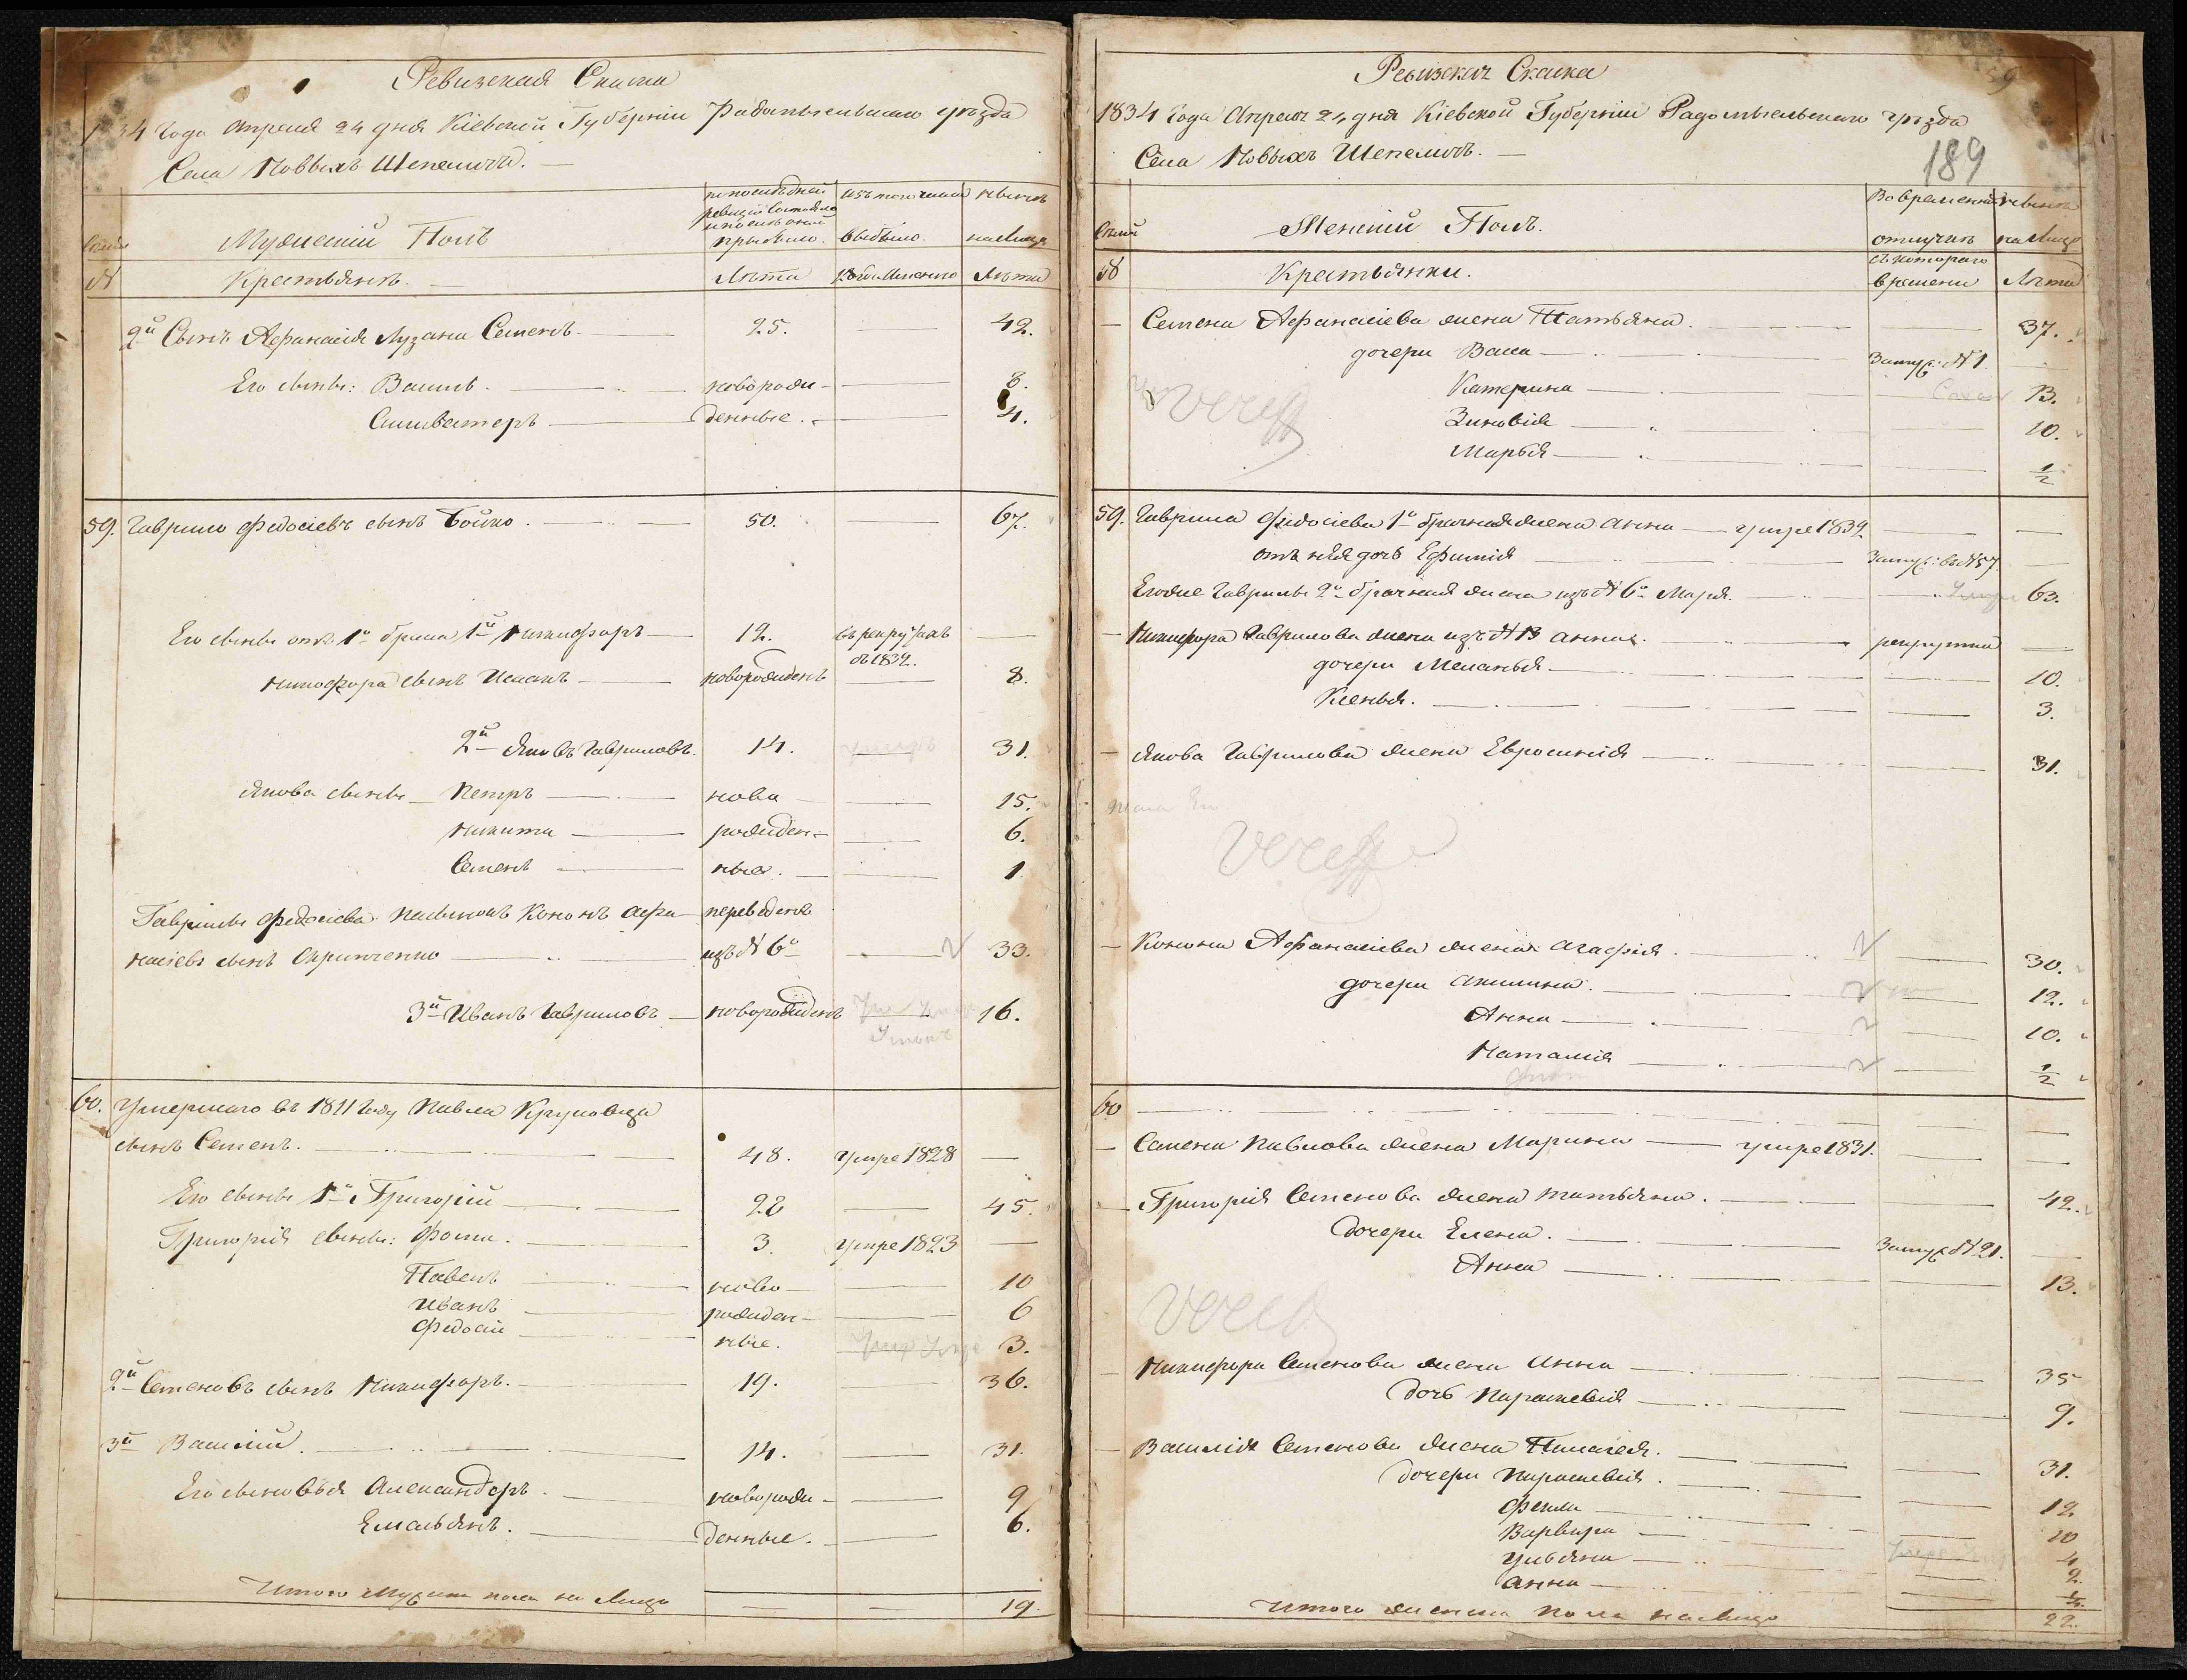 Ревизская Сказка
1834 Года Апреля 24 дня Кіевской Губерніи Радомысльскаго уѣзда
Села Новыхъ Шепеличъ.
по послѣдней ревизіи состояло и послѣ оной прибыло.
Изъ того числа выбыло.
нынѣ на лицо
Семьи
Мужескій Полъ
№
Крестьянъ.
Лѣта
Когда именно
Лѣта
2й Сынъ Афанасія Лузана Семенъ 25. 42.
Его сыны: Василь новорож- 8.
Сильвестеръ денные. 4.
59. Гаврило Федосіевъ сынъ Бойко. 50. 67.
Его сыны отъ 1о брака, 1й Никифоръ 12. въ рекрутахъ
съ 1832.
Никифора сынъ Исакъ новорожденъ 8.
2й Яковъ Гавриловъ. 14. 31.
Якова сыны Петръ ново 15.
Никита рожден- 6.
Семенъ ные. 1
Гаврилы Федосіева пасынокъ Кононъ Афа- переведенъ
насіевъ сынъ изъ № 6о 33.
3й Иванъ Гавриловъ новорожденъ 16.
60. Умершаго въ 1811 Году Павла Круковца
сынъ Семенъ. 48. умре 1828
Его сыны 1й Григорій 28 45.
Григорія сыны: Фома. 3. умре 1823
Павелъ ново- 10
Иванъ рожден- 6
Федосій ные. 3.
2й Семеновъ сынъ Никифоръ. 19. 36.
3й Василій. 14. 31.
Его сыновья Александеръ. новорож- 9
Емельянъ. денные. 6.
Итого мужеска пола на лицо 19.
Ревизская Сказка
59
1834 Года Апреля 24 дня Кіевской Губерніи Радомысльскаго уѣзда
Села Новыхъ Шепеличъ.
189
Во временной отлучкѣ
нынѣ на лицо
Семьи
Женскій Полъ.
съ котораго времени
Лѣта
58
Крестьянки.
Семена Афанасіева жена Татьяна. 37.
дочери Васса замуж: № 1
Катерина 13.
Зиновія 10.
Марья 1/2
59. Гаврила Федосіева 1о брачная жена Анна умре 1832
отъ нея дочь Ефимія замуж: въ № 57.
Егоже Гаврилы 2о брачная жена изъ № 6о Марія. 63.
Никифора Гаврилова жена изъ № 13 Анна. рекрутка
дочери Меланья 10.
Ксенья. 3.
Якова Гаврилова жена Евросинія 31.
Конона Афанасіева жена Агафія. 30.
дочери Акилина. 12.
Анна 10.
Наталія 1/2
60
Семена Павлова жена Марина умре 1831.
Григорія Семенова жена Татьяна. 42.
Дочери Елена. замуж № 21.
Анна 13.
Никифора Семенова жена Анна 35
Дочь Параскевія 9.
Василія Семенова жена Пилагея. 31.
Дочери Параскевія. 12
Фекла 10
Варвара 4
Ульяна умре 2.
Анна
Итого женска пола на лицо 22.